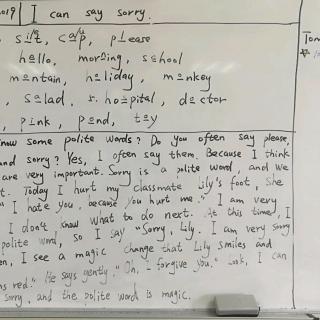 2019 I can say sorry.
Tom
sit, cap, please
hello, morning, school
mountain, holiday, monkey
, salad, hospital, doctor
, pink, pond, toy
know some polite words? Do you often say please,
and sorry? Yes, I often say them. Because I think
are very important. Sorry is a polite word, and we
t. Today I hurt my classmate Lily's foot, She
"I hate you, because you hurt me." I am very
I don't know what to do next. At this time, I
polite word, so I say "Sorry, Lily. I am very sorry
en, I see a magic change that Lily smiles and
ns red." He says gently, "Oh, I forgive you." Look, I can
sorry, and the polite word is magic.